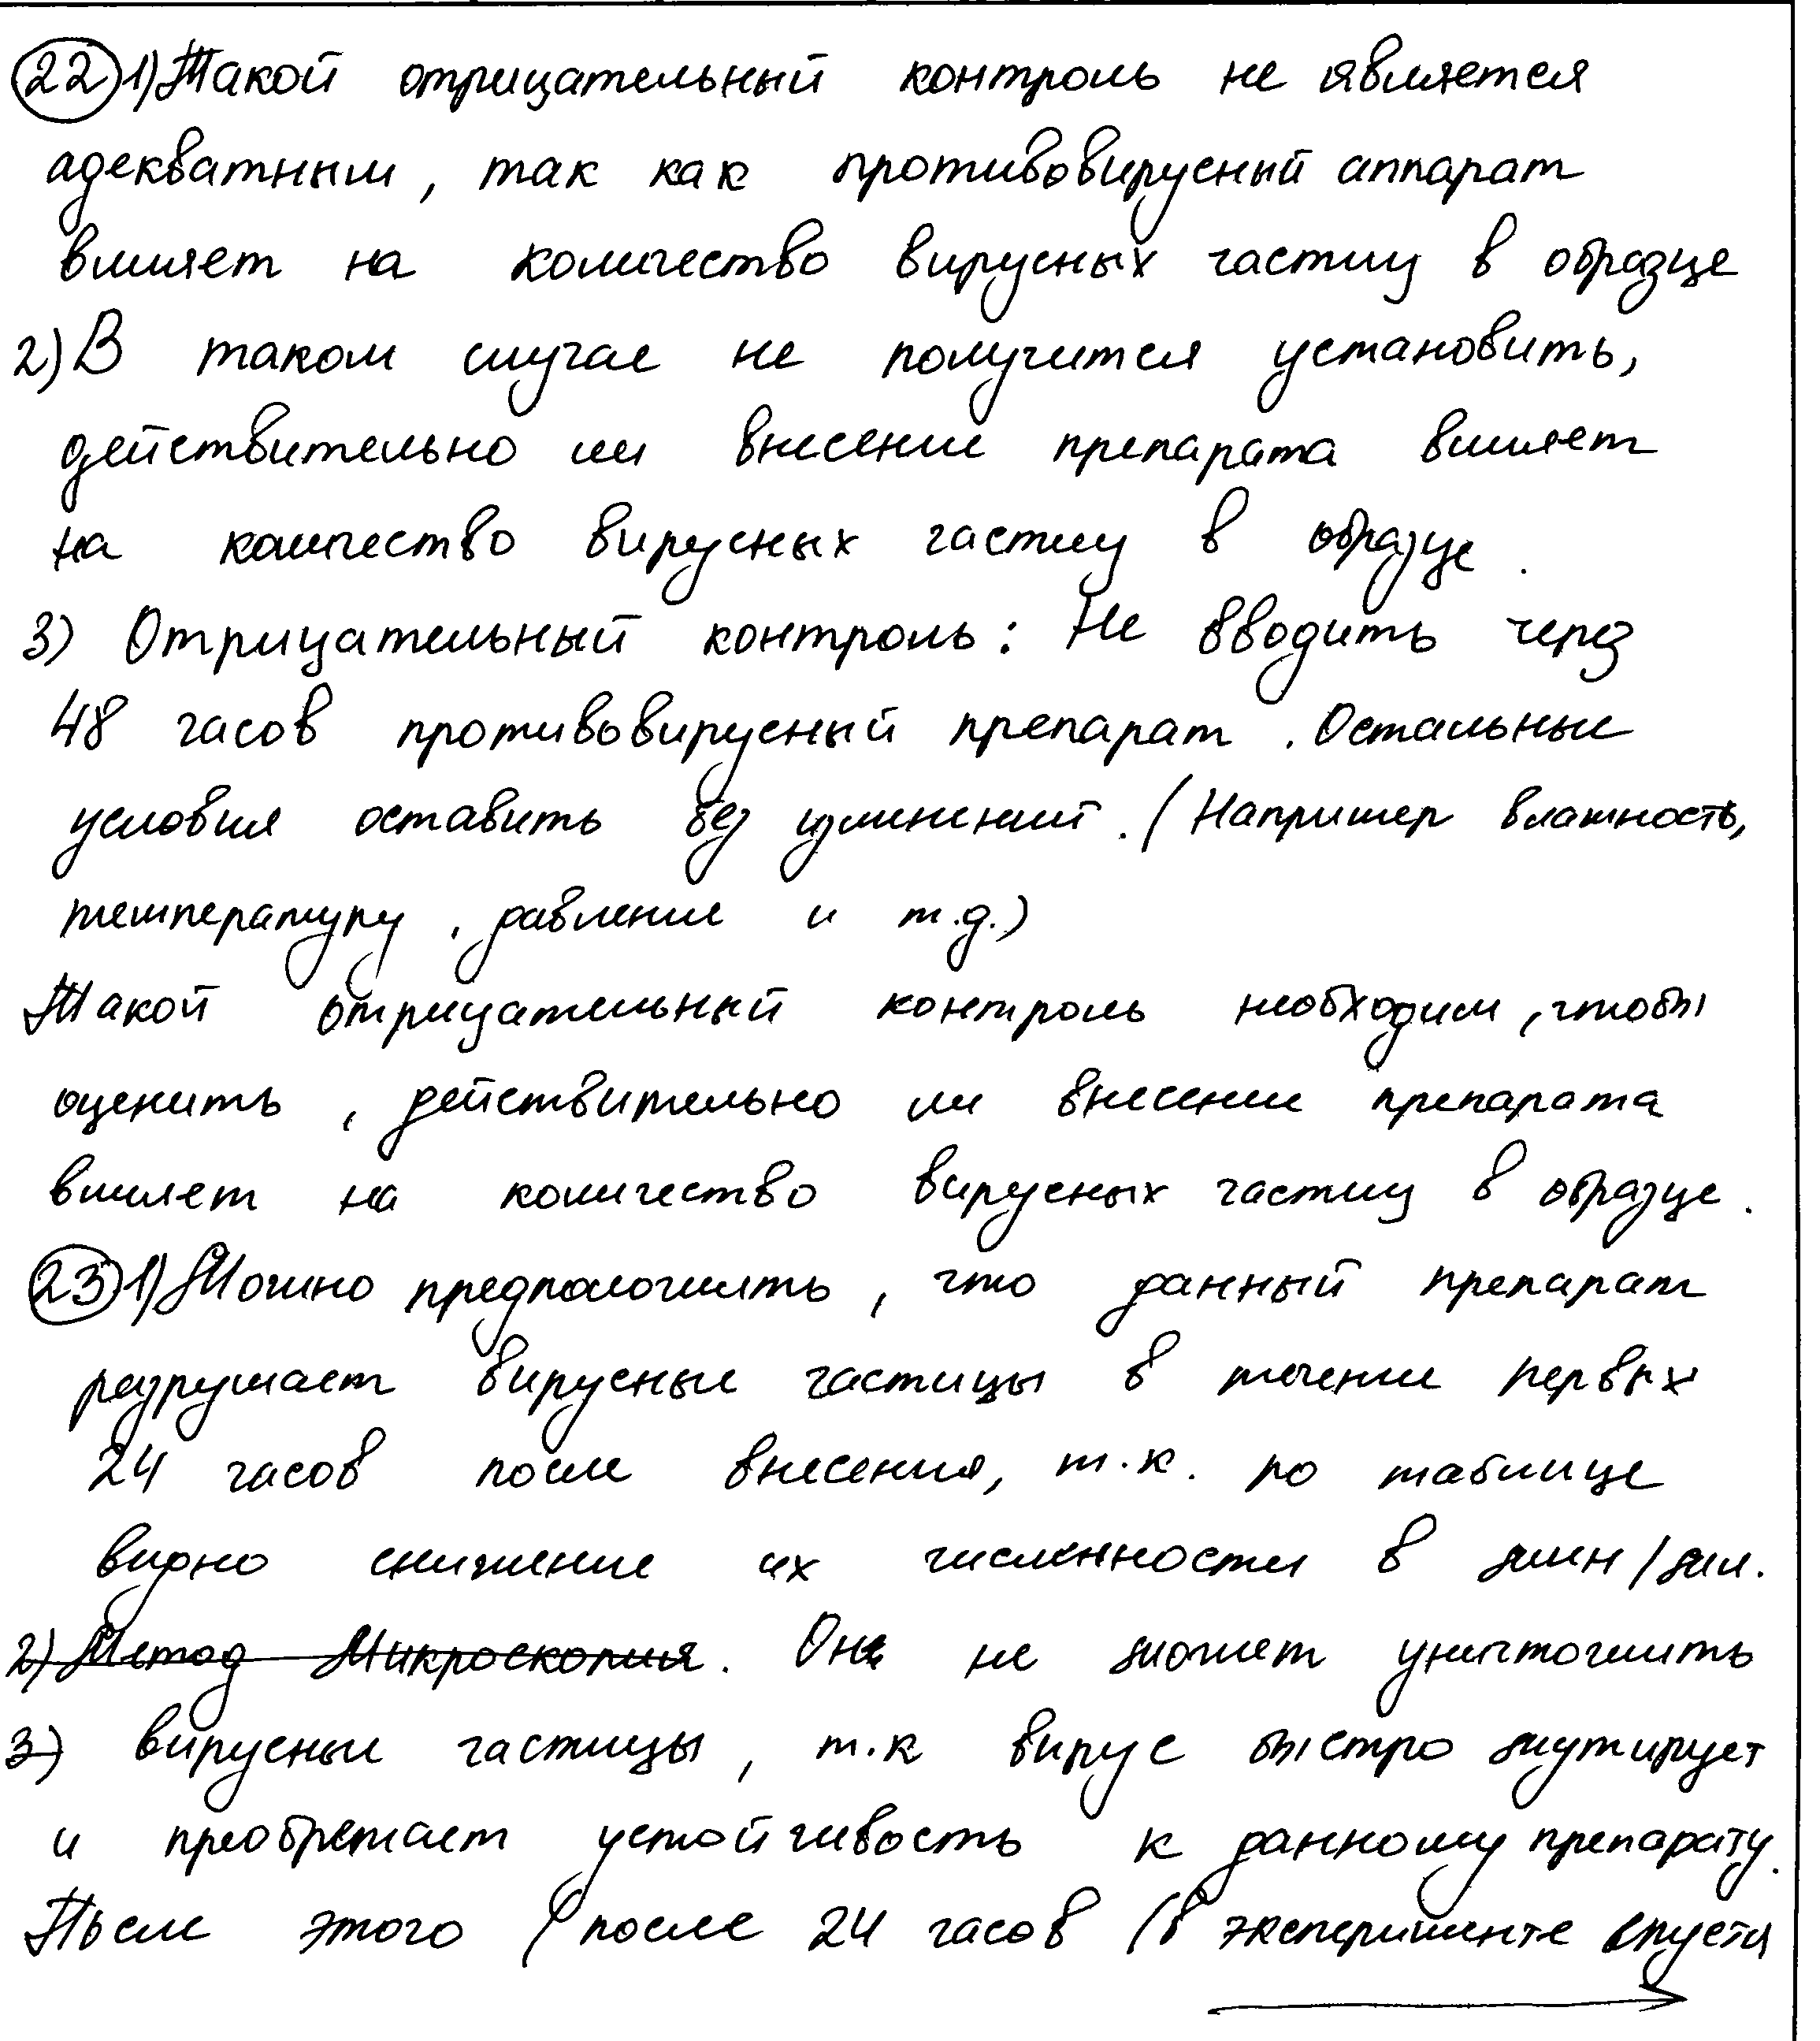 22 1) Такой отрицательный контроль не является
адекватным, так как противовирусный аппарат
влияет на количество вирусных частиц в образце
2) В таком случае не получится установить,
действительно ли внесение препарата влияет
на количество вирусных частиц в образце.
3) Отрицательный контроль: Не вводить через
48 часов противовирусный препарат. Остальные
условия оставить без изменений. (Например влажность,
температуру, давление и т.д.)
Такой отрицательный контроль необходим, чтобы
оценить, действительно ли внесение препарата
влияет на количество вирусных частиц в образце.
23 1) Можно предположить, что данный препарат
разрушает вирусные частицы в течении первых
24 часов после внесения, т.к. по таблице
видно снижение их численности в млн/мл.
2) Метод Микроскопия. Он не может уничтожить
3) вирусные частицы, т.к вирус быстро мутирует
и преобретает устойчивость к данному препарату.
После этого (после 24 часов (в эксперименте спустя